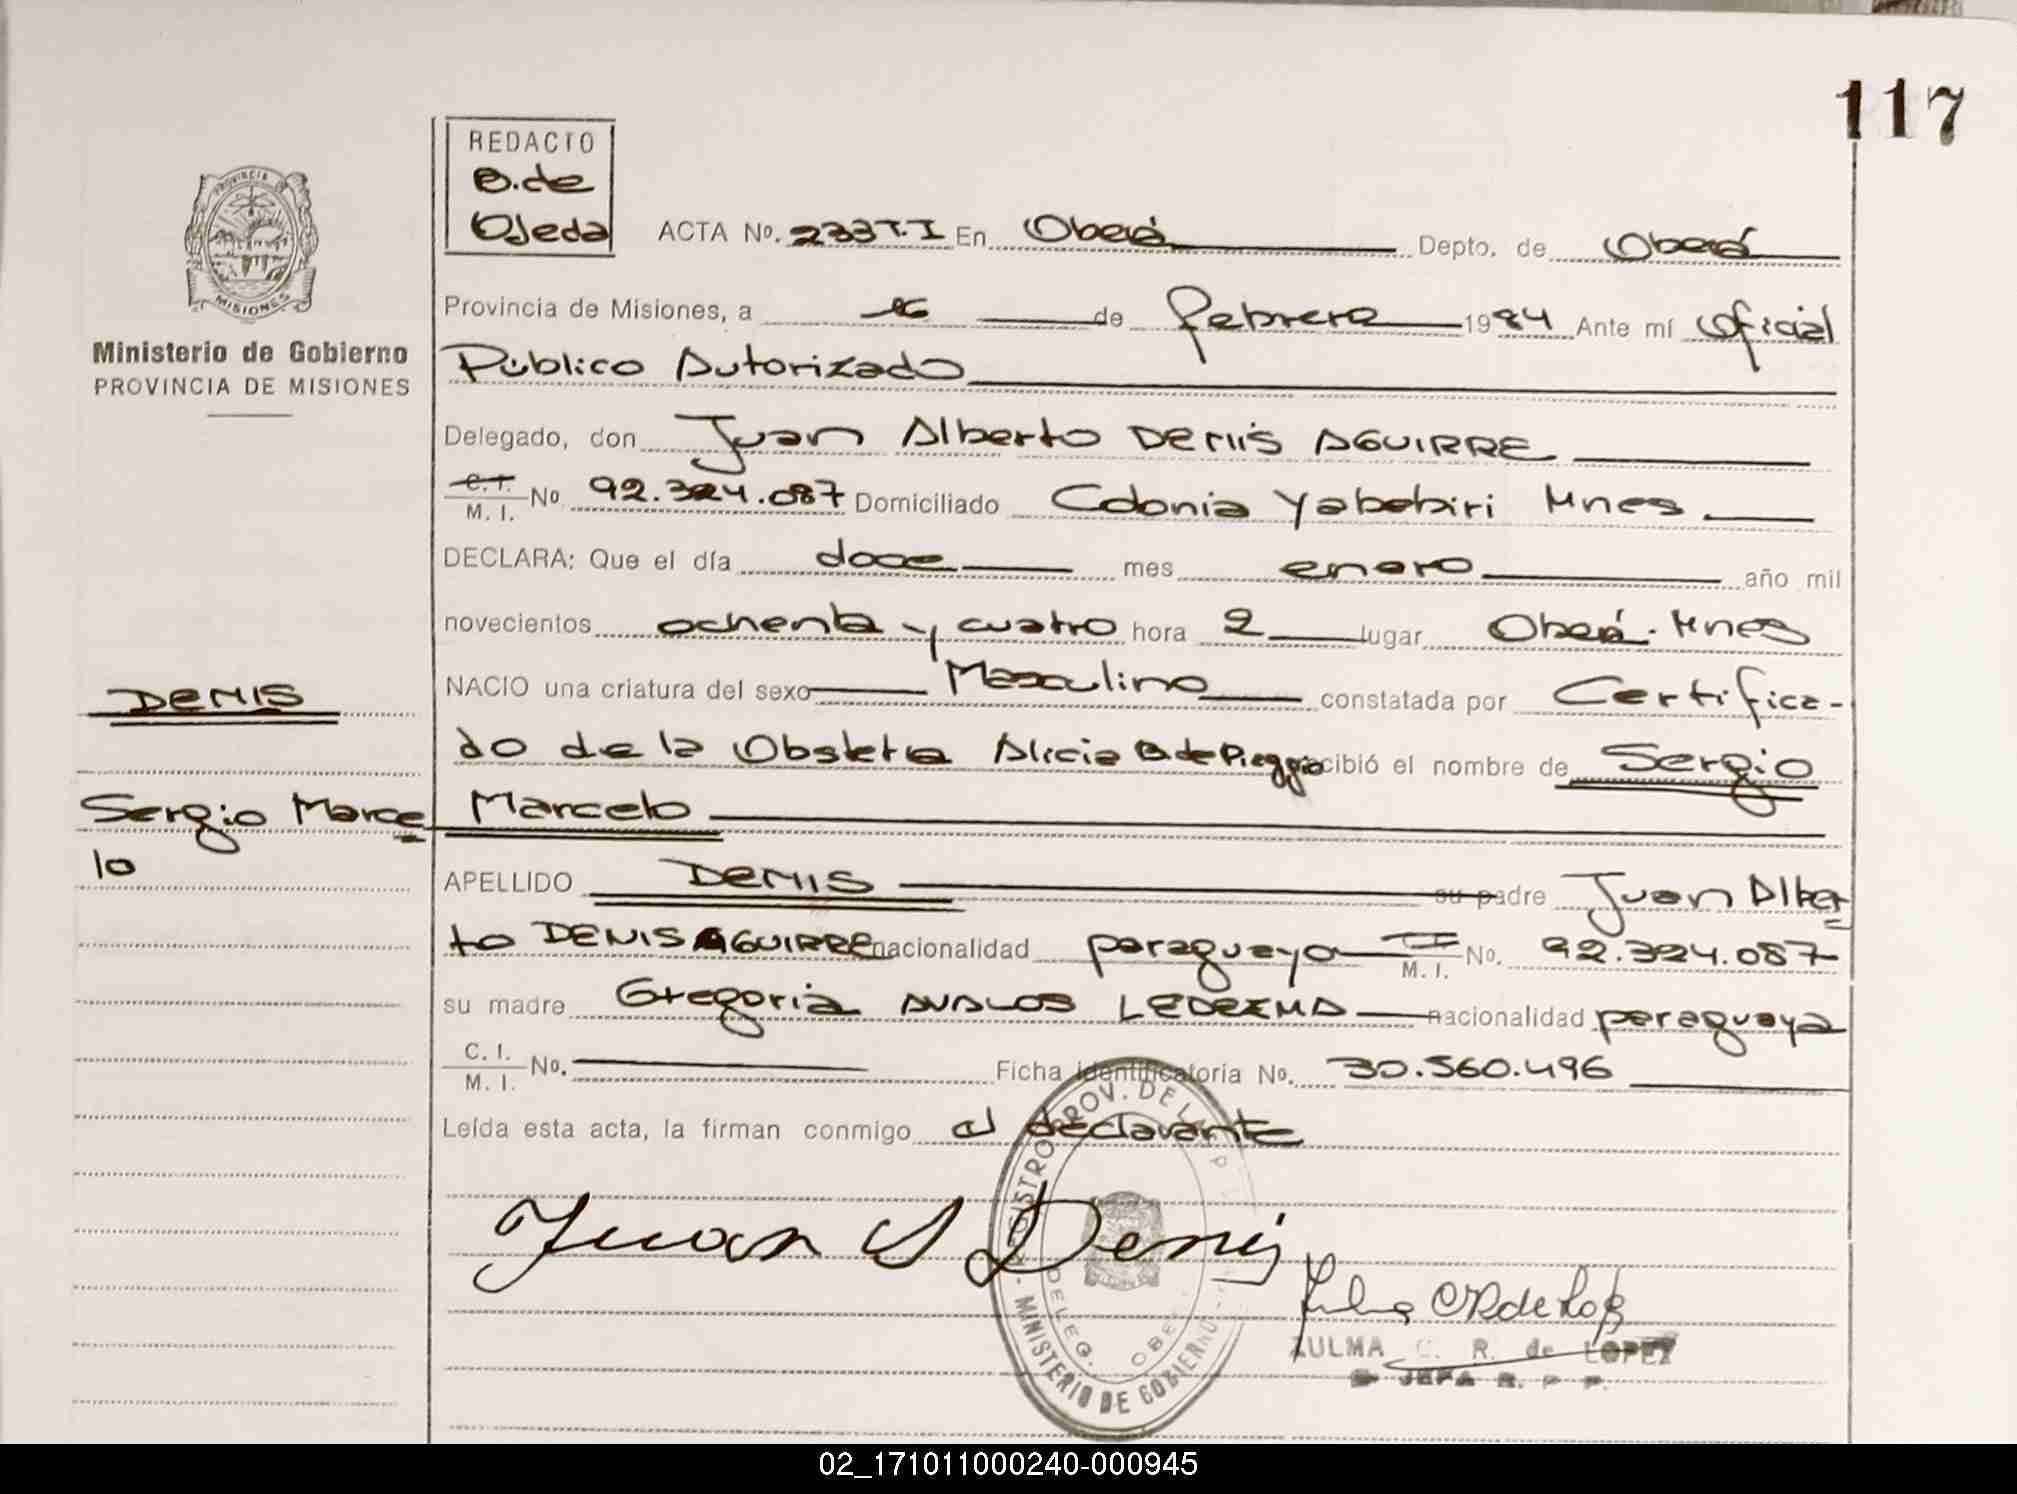 117
REDACTO
B. de
Ojeda
PROVINCIA
MISIONES
Ministerio de Gobierno
PROVINCIA DE MISIONES
ACTA No. 233 T.I En Oberá Depto. de Oberá
Provincia de Misiones, a 16 de febrero 1984 Ante mí Oficial
Público Autorizado
Delegado, don Juan Alberto DENIS AGUIRRE
C.I. M. I. No 92.324.087 Domiciliado Colonia Yabebiri Mnes
DECLARA: Que el día doce mes enero año mil
novecientos ochenta y cuatro hora 2 lugar Oberá. Mnes
NACIO una criatura del sexo Masculino constatada por Certifica-
do de la Obstetra Alicia B. de recibió el nombre de Sergio
Marcelo
DENIS
Sergio Marce
lo
APELLIDO DENIS su padre Juan Alber
to DENIS AGUIRRE nacionalidad paraguayo M. I. No. 92.324.087
su madre Gregoria AVALOS LEDEZMA nacionalidad paraguaya
C. I. M. I. No. Ficha identificatoria No. 30.560.496
Leída esta acta, la firman conmigo el declarante
Juan A Denis
REGISTRO PROV. DE LAS P
MINISTERIO DE GOBIERNO
DELEG. OBE
ZULMA C. R. de LOPEZ
JEFA R. P P.
02_171011000240-000945